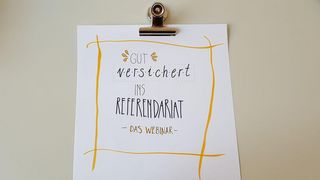 GUT
versichert
INS
REFERENDARIAT
- DAS WEBINAR -